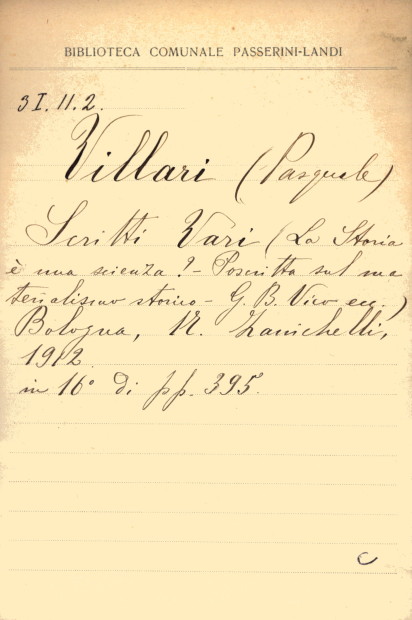 BIBLIOTECA COMUNALE PASSERINI-LANDI
3I.11.2.
Villari (Pasquale)
Scritti Vari (La Storia
è una scienza? - Poscritta sul ma
terialismo storico - G. B. Vico ecc.)
Bologna, N. Zanichelli,
1912
in 16° di pp. 395.
C